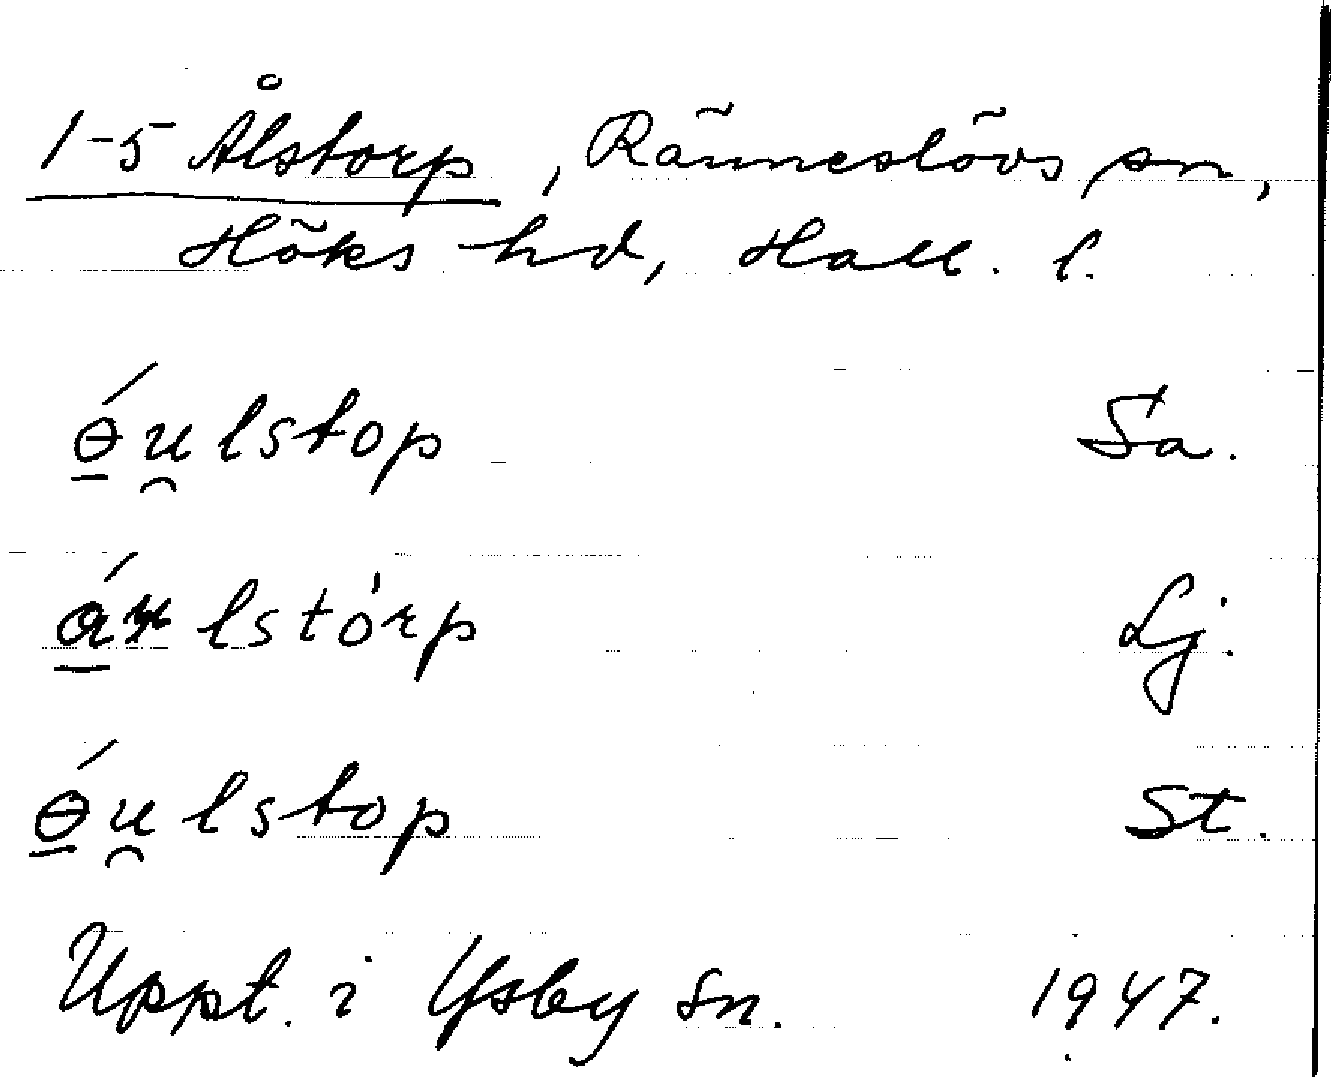 1-5 Ålstorp, Ränneslövs sn,
Höks hd, Hall. l.
ɵ́u̯lstop Sa.
lstòrp Lj.
ɵ́u̯lstop St.
Uppt. i Ysby sn. 1947.